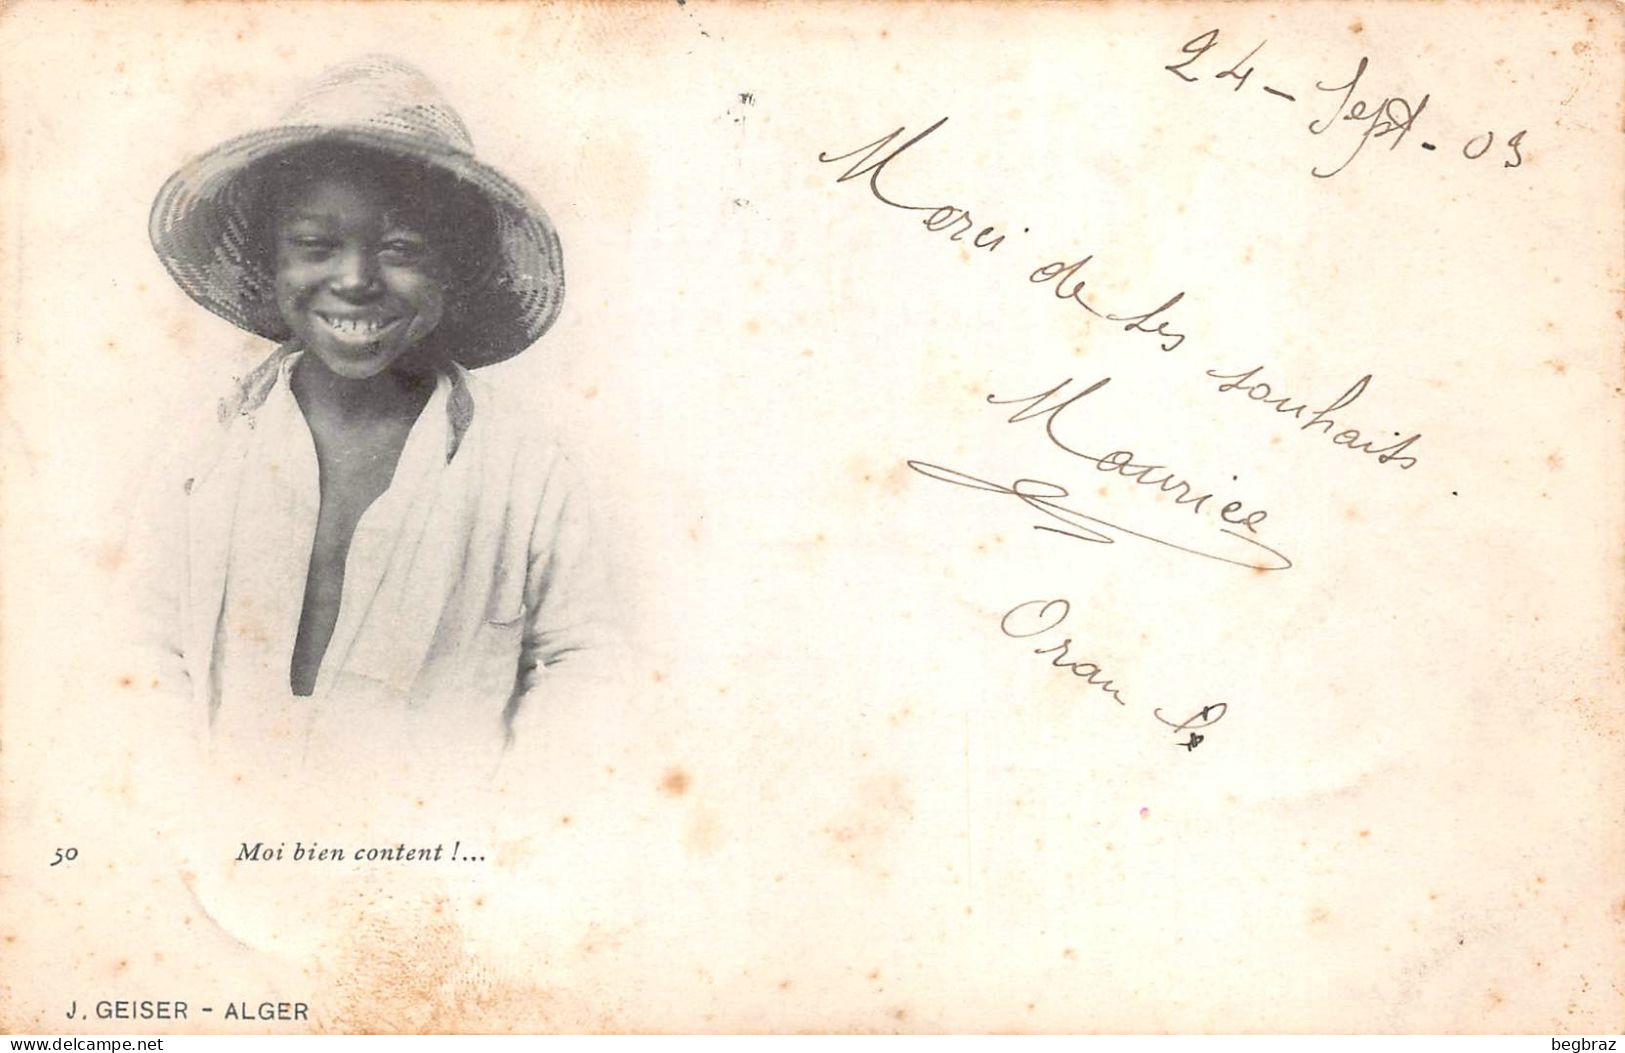 24 - Sept - 03
Merci de tes souhaits.
Maurice
Oran
50 Moi bien content !...
J. GEISER - ALGER
delcampe.net
begbraz